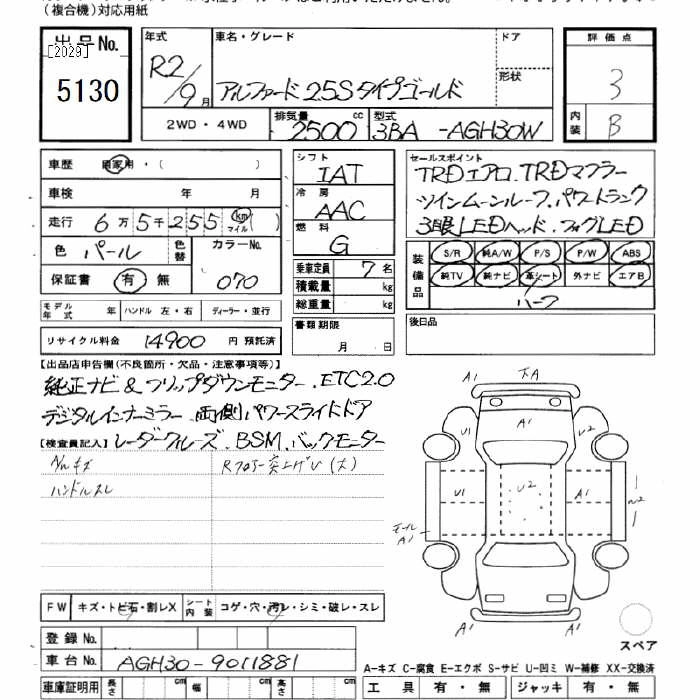 (複合機)対応用紙
出品No. [2029] 5130
年式 R2/9月
車名・グレード アルファード 2.5S タイプゴールド
ドア
形状
評価点 3
内装 B
2WD・4WD
排気量 2500 cc
型式 3BA -AGH30W
車歴 自家用・( )
車検 年 月
走行 6万5千255 km マイル ( )
色 パール 色替 カラーNo. 070
保証書 有 無
シフト IAT
冷房 AAC
燃料 G
乗車定員 7名
積載量 kg
総重量 kg
書類期限 月 日
セールスポイント
TRDエアロ、TRDマフラー
ツインムーンルーフ、パワートランク
3眼LEDヘッド、フォグLED
装備品 S/R 純A/W P/S P/W ABS
純TV 純ナビ 革シート 外ナビ エアB
ハーフ
後日品
モデル年式 年 ハンドル 左・右 ディーラー・並行
リサイクル料金 14900 円 預託済
【出品店申告欄(不良箇所・欠品・注意事項等)】
純正ナビ & フリップダウンモニター、ETC2.0
デジタルインナーミラー、両側パワースライドドア
【検査員記入】レーダークルーズ、BSM、バックモニター
A/Wキズ
ハンドルスレ
Rフロアー突上げU(大)
A1 下A
A1
U1 U2 A1 W2
モール A1
A1 A1
FW キズ・トビ石・割レX シート内装 コゲ・穴・汚レ・シミ・破レ・スレ
スペア
登録No.
車台No. AGH30-9011881
A-キズ C-腐食 E-エクボ S-サビ U-凹ミ W-補修 XX-交換済
車庫証明用 長さ cm 幅 cm 高さ cm
工具 有・無 ジャッキ 有・無